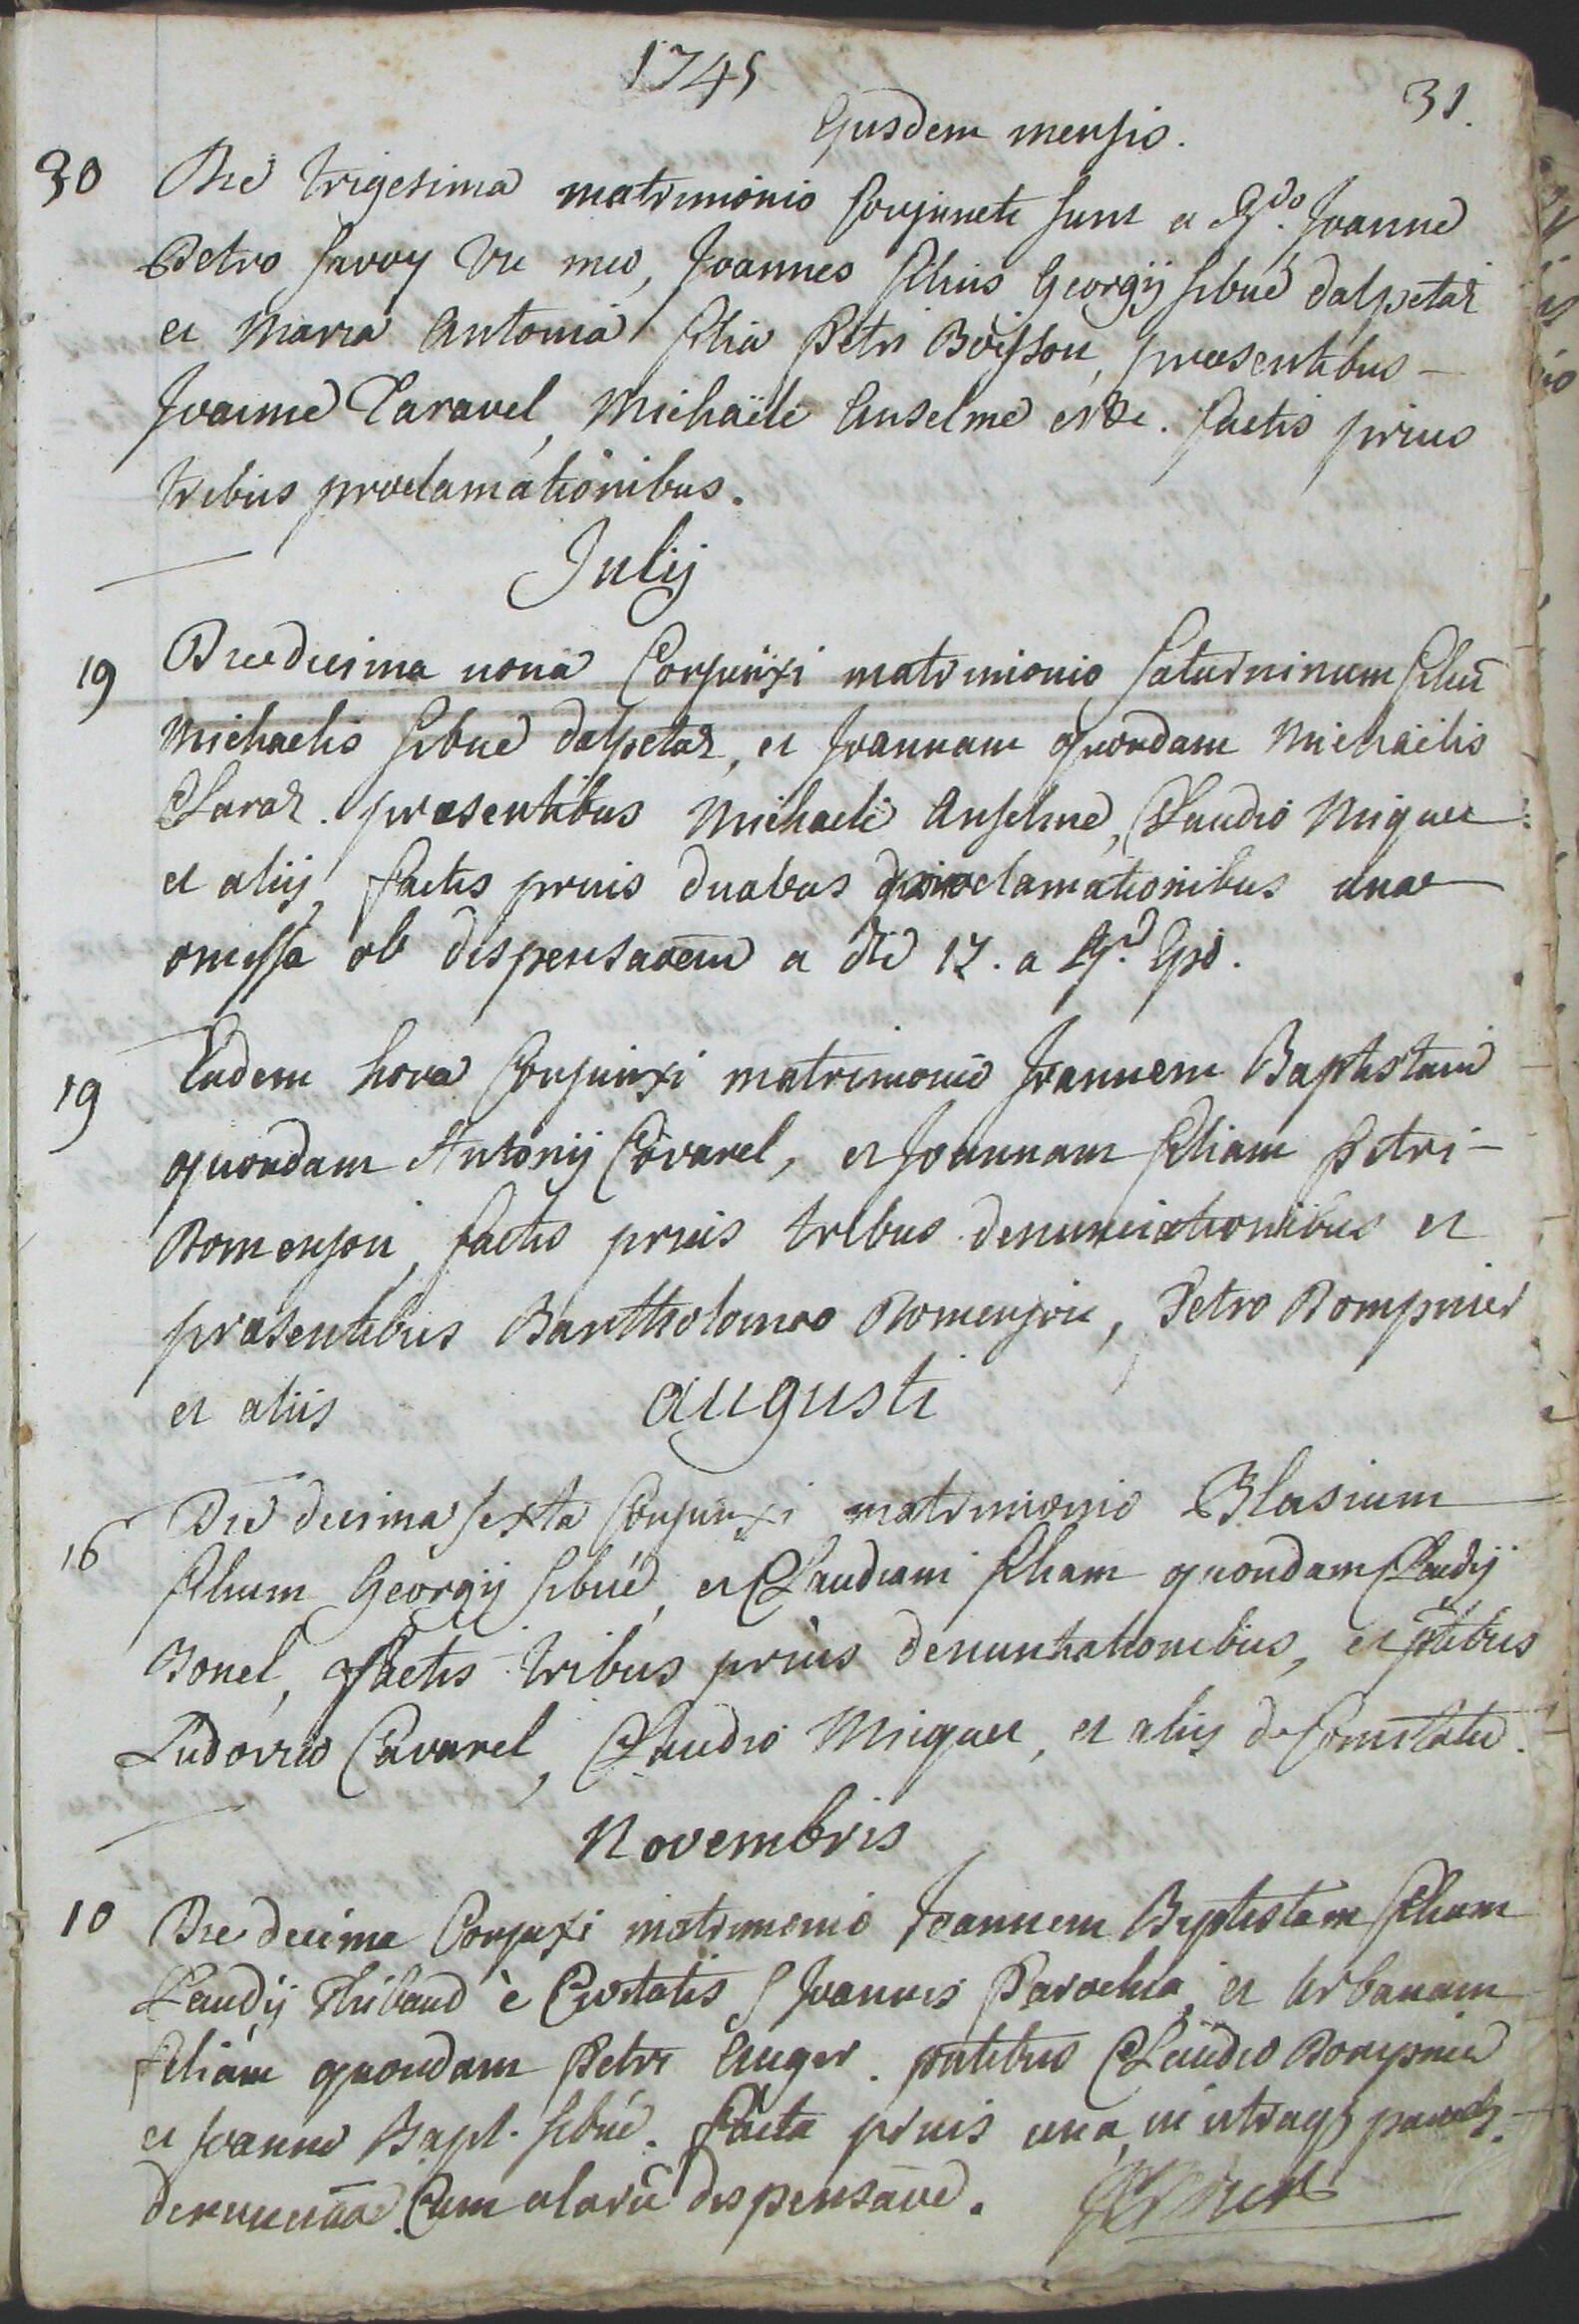 1745
31.
Ejusdem mensis.
30 Die trigesima matrimonio Conjuncti sunt a Rdo. Joanne
Petro Savoy Vic meo, Joannes filius Georgij Sibué dalpetaz
et Maria Antonia filia Petri Boisson, praesentibus –
Joanne Caravel, Michaële Anselme et &c. factis prius
tribus proclamationibus.
Julij
19 Die decima nona Conjunxi matrimonio Saturninum filiū
Michaelis Sibué dalpetaz, et Joannam quondam Michaëlis
Claraz. praesentibus Michaele Anselme, Claudio Miguet
et alijs, factis prius duabus proclamationibus una
omissa ob dispensaōem a die 17. a Rd. Epo.
19 Eadem hora Conjunxi matrimonio Joannem Baptistam
quondam Antonij Cavarel, et Joannam filiam Petri –
Romenson, factis prius tribus denunciationibus et
praesentibus Bartholomeo Romenson, Petro Rompnier
et aliis
Augusti
16 Die decima sexta Conjunxi matrimonio Blasium
filium Georgij Sibué, et Claudiam filiam quondam Claudij
Bonel, factis tribus prius denuntiationibus, et p̄ntibus
Ludovico Cavarel, Claudio Miguet, et alijs de Comitatu.
Novembris
10 Die decima Conjuxi matrimonio Joannem Baptistam filium
Claudij Thibaud è Civitatis S Joannis Parochia, et Urbanam
filiam quondam Petri Auger. p̄ntibus Claudio Rompnier
et Joanne Bapt. Sibué. facta prius una, in utraq3 paroch.
denunciāōe Cum aliarū dispensāōe.